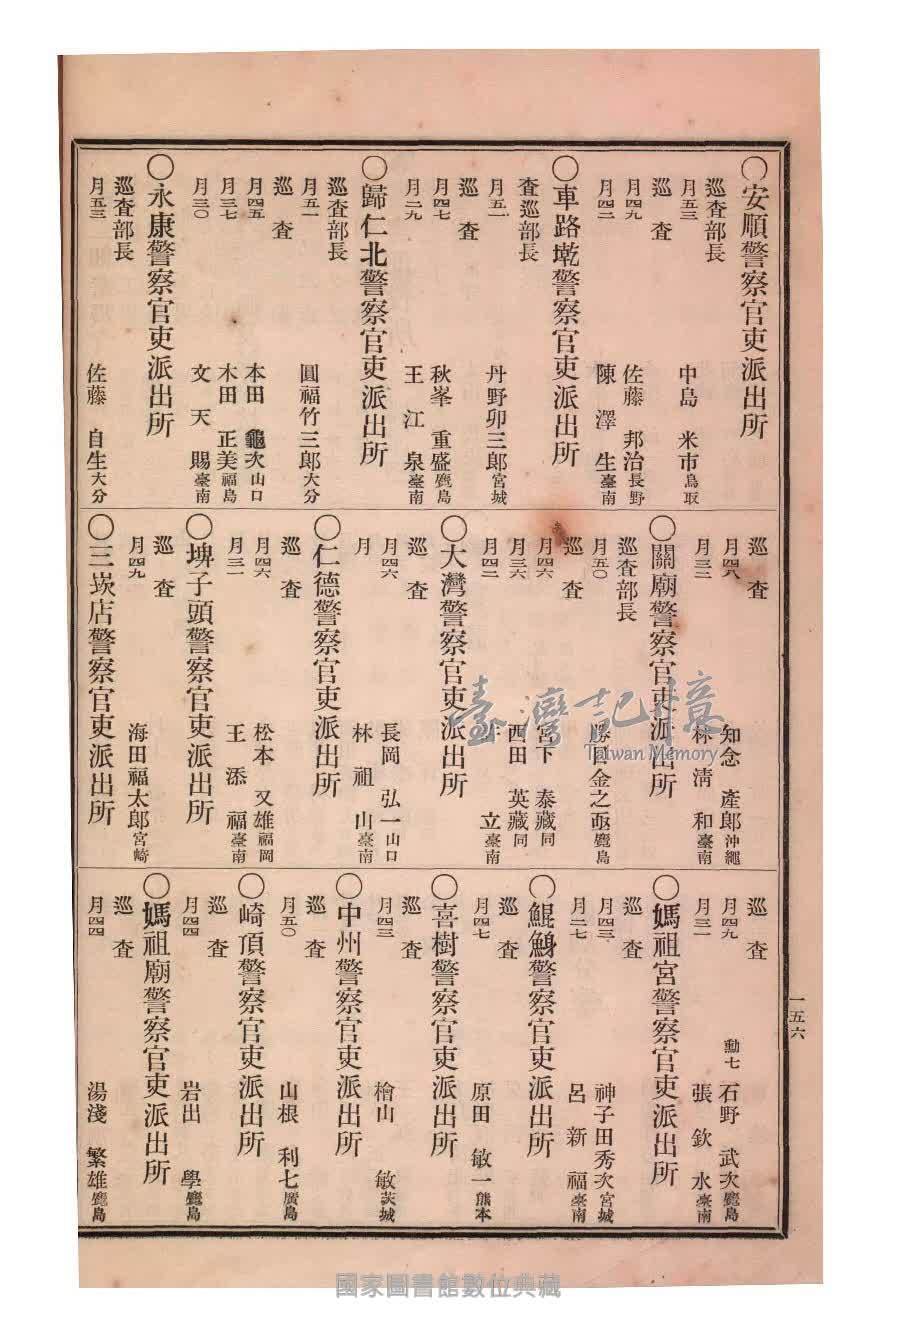 一五六
〇安順警察官吏派出所
巡査部長
月五三 中島 米市鳥取
巡査
月四九 佐藤 邦治長野
月四二 陳 澤 生臺南
〇車路墘警察官吏派出所
査巡部長
月五一 丹野卯三郎宮城
巡査
月四七 秋峯 重盛鹿島
月二九 王 江 泉臺南
〇歸仁北警察官吏派出所
巡査部長
月五一 圓福竹三郎大分
巡査
月四五 本田 龜次山口
月三七 木田 正美福島
月三〇 文 天 賜臺南
〇永康警察官吏派出所
巡査部長
月五三 佐藤 自生大分
巡査
月四八 知念 產郎沖繩
月三二 林 淸 和臺南
〇關廟警察官吏派出所
巡査部長
月五〇 勝目金之亟鹿島
巡査
月四六 宮下 泰藏同
月三六 西田 英藏同
月四二 立臺南
〇大灣警察官吏派出所
巡査
月四六 長岡 弘一山口
月 林 祖 山臺南
〇仁德警察官吏派出所
巡査
月四六 松本 又雄福岡
月三一 王 添 福臺南
〇埤子頭警察官吏派出所
巡査
月四九 海田福太郎宮崎
〇三崁店警察官吏派出所
巡査
月四九 勳七 石野 武次鹿島
月三一 張 欽 水臺南
〇媽祖宮警察官吏派出所
巡査
月四三 神子田秀次宮城
月二七 呂 新 福臺南
〇鯤鯓警察官吏派出所
巡査
月四七 原田 敏一熊本
〇喜樹警察官吏派出所
巡査
月四三 檜山 敏茨城
〇中州警察官吏派出所
巡査
月五〇 山根 利七廣島
〇崎頂警察官吏派出所
巡査
月四四 岩出 學鹿島
〇媽祖廟警察官吏派出所
巡査
月四四 湯淺 繁雄鹿島
臺灣記憶
Taiwan Memory
國家圖書館數位典藏